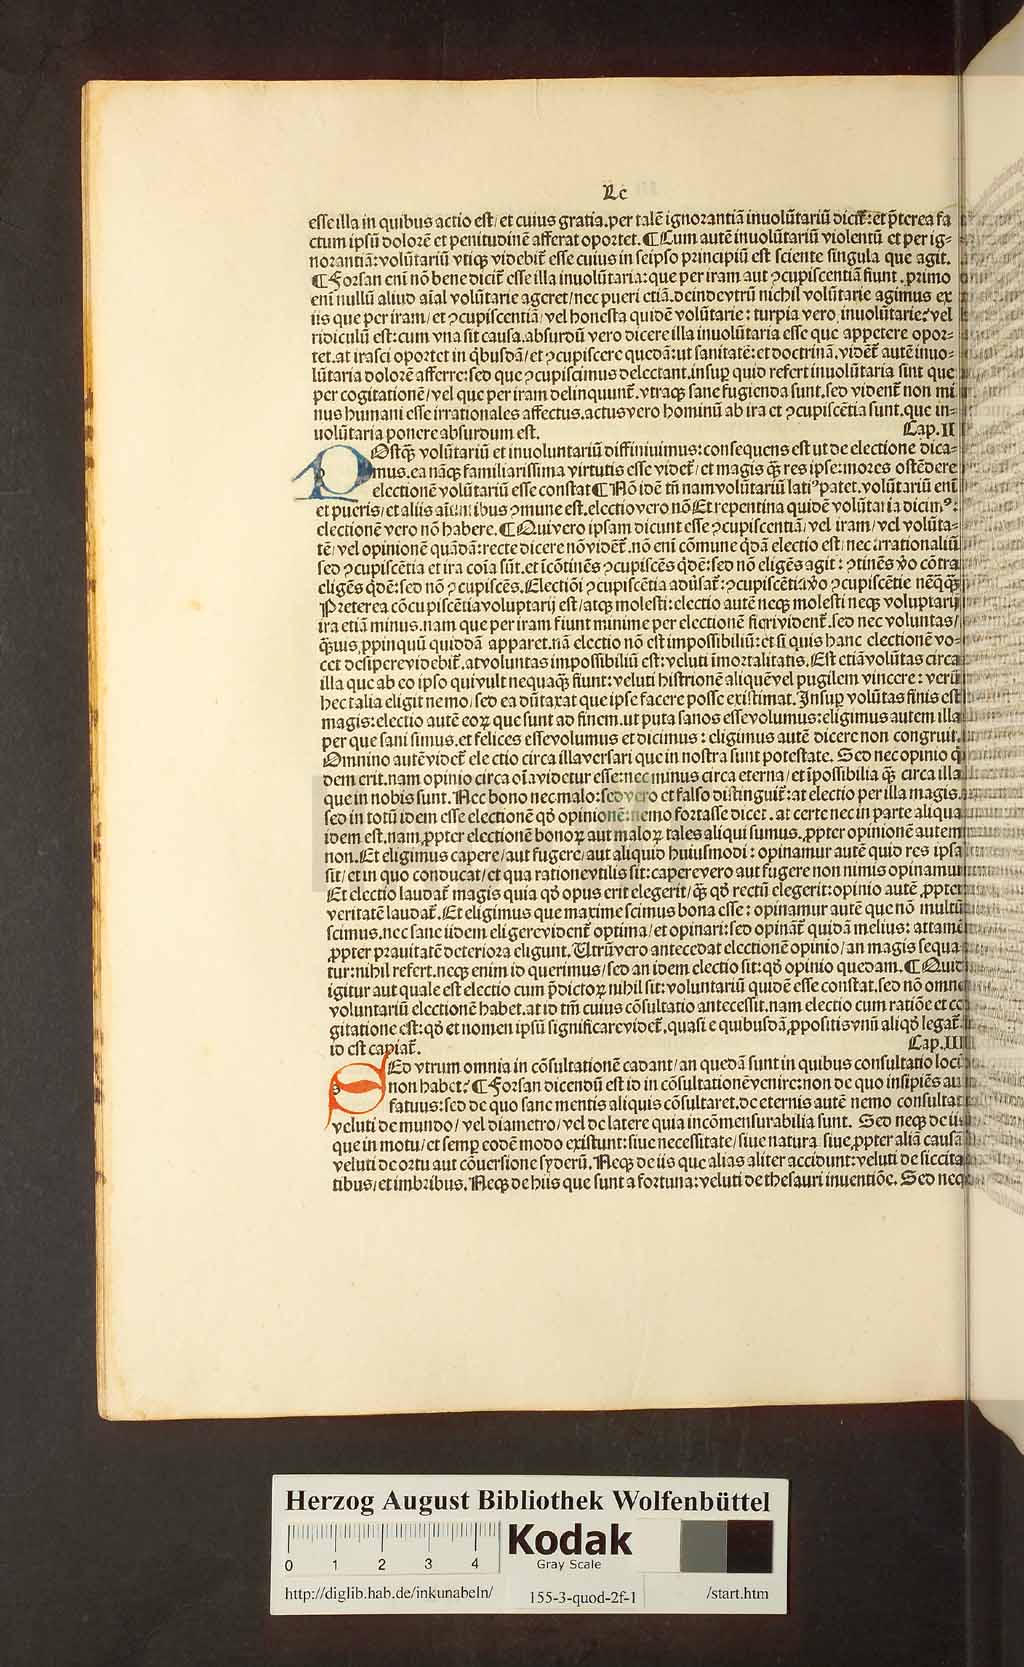 Lc
esse illa in quibus actio est/ et cuius gratia.per talē ignorantiā inuolūtariū dicit̄:et p̄terea fa
ctum ipsū dolorē et penitudinē afferat oportet.¶Cum autē inuolūtariū violentū et per ig⸗
norantiā:voluntariū vtiqꝫ videbit̄ esse cuius in seipso principiū est sciente singula que agit.
¶Forsan eni nō bene dicit̄ esse illa inuolūtaria:que per iram aut ꝯcupiscentiā fiunt.primo
eni nullū aliud aīal volūtarie ageret/ nec pueri etiā.deinde vtrū nichil volūtarie agimus ex
iis que per iram/ et ꝯcupiscentiā/ vel honesta quidē volūtarie: turpia vero inuolūtarie?vel
ridiculū est:cum vna sit causa.absurdū vero dicere illa inuolūtaria esse que appetere opor⸗
tet.at irasci oportet in q̇busdā/ et ꝯcupiscere quedā:ut sanitatē:et doctrinā.videt̄ autē inuo⸗
lūtaria dolorē afferre:sed que ꝯcupiscimus delectant.insuꝑ quid refert inuolūtaria sint que
per cogitationē/ vel que per iram delinquunt̄.vtraqꝫ sane fugienda sunt.sed vident̄ non mi
nus humani esse irrationales affectus.actus vero hominū ab ira et ꝯcupiscētia sunt.que in⸗
uolūtaria ponere absurdum est.
Cap.II
POstqꝫ volūtariū et inuoluntariū diffiniuimus:consequens est ut de electione dica⸗
mus.ea nāqꝫ familiarissima virtutis esse videt̄/ et magis qꝫ res ipse:mores ostēdere
electionē volūtariū esse constat¶Nō idē tn̄ nam volūtariū latiꝰ patet.volūtariū eni
et pueris/ et aliis aīantibus ꝯmune est.electio vero nō Et repentina quidē volūtaria dicimꝰ:
electionē vero nō habere.¶Qui vero ipsam dicunt esse ꝯcupiscentiā/ vel iram/ vel volūta⸗
tē/ vel opinionē quādā:recte dicere nō vident̄.nō eni cōmune q̇dā electio est/ nec irrationaliū
sed ꝯcupiscētia et ira coīa sūt.et īcōtinēs ꝯcupiscēs q̇dē:sed nō eligēs agit: ꝯtinēs ṽo cōtra
eligēs q̇dē:sed nō ꝯcupiscēs.Electiōi ꝯcupiscētia adūsat̄:ꝯcupiscētia ṽo ꝯcupiscētie neq̄qꝫ
Preterea cōcupiscētia voluptarij est/ atqꝫ molesti:electio autē neqꝫ molesti neqꝫ voluptarij
ira etiā minus.nam que per iram fiunt minime per electionē fieri vident̄.sed nec voluntas/
qꝫuis ꝓpinquū quiddā apparet.nā electio nō est impossibiliū:et si quis hanc electionē vo⸗
cet desipere videbit̄.at voluntas impossibiliū est:veluti īmortalitatis.Est etiā volūtas circa
illa que ab eo ipso qui vult nequaqꝫ fiunt:veluti histrionē aliquē vel pugilem vincere: verū
hec talia eligit nemo/ sed ea dūtaxat que ipse facere posse existimat.Insuꝑ volūtas finis est
magis:electio autē eoꝝ que sunt ad finem.ut puta sanos esse volumus:eligimus autem illa
per que sani simus.et felices esse volumus et dicimus: eligimus autē dicere non congruit.
Omnino autē videt̄ electio circa illa versari que in nostra sunt potestate. Sed nec opinio q̇
dem erit.nam opinio circa oīa videtur esse:nec minus circa eterna/ et īpossibilia qꝫ circa illa
que in nobis sunt.Nec bono nec malo:sed vero et falso distinguit̄:at electio per illa magis.
sed in totū idem esse electionē qd̄ opinionē:nemo fortasse dicet. at certe nec in parte aliqua
idem est.nam ꝓpter electionē bonoꝝ aut maloꝝ tales aliqui sumus.ꝓpter opinionē autem
non.Et eligimus capere/ aut fugere/ aut aliquid huiusmodi: opinamur autē quid res ipsa
sit/ et in quo conducat/ et qua ratione vtilis sit:capere vero aut fugere non nimis opinamur
Et electio laudat̄ magis quia qd̄ opus erit elegerit/ qꝫ qd̄ rectū elegerit:opinio autē ꝓpter
veritatē laudat̄.Et eligimus que maxime scimus bona esse: opinamur autē que nō multū
scimus.nec sane iidem eligere vident̄ optima/ et opinari:sed opināt̄ quidā melius: attamē
ꝓpter prauitatē deteriora eligunt.Utrū vero antecedat electionē opinio/ an magis sequa
tur:nihil refert.neqꝫ enim id querimus/ sed an idem electio sit:qd̄ opinio quedam.¶Quid
igitur aut quale est electio cum p̄dictoꝝ nihil sit:voluntariū quidē esse constat.sed nō omne
voluntariū electionē habet.at id tm̄ cuius cōsultatio antecessit.nam electio cum ratiōe et co
gitatione est:qd̄ et nomen ipsū significare videt̄.quasi e quibusdā ꝓpositis vnū aliqd̄ legat̄
id est capiat̄.
Cap.III
SEd vtrum omnia in cōsultationē cadant/ an quedā sunt in quibus consultatio locū
non habet?¶Forsan dicendū est id in cōsultationē venire:non de quo insipiēs au
fatuus:sed de quo sane mentis aliquis cōsultaret.de eternis autē nemo consultat
veluti de mundo/ vel diametro/ vel de latere quia incōmensurabilia sunt. Sed neqꝫ de iis
que in motu/ et semꝑ eodē modo existunt:siue necessitate/ siue natura siue ꝓpter aliā causā
veluti de ortu aut cōuersione syderū.Neqꝫ de iis que alias aliter accidunt:veluti de siccita
tibus/ et imbribus.Neqꝫ de hiis que sunt a fortuna:veluti de thesauri inuentiōe. Sed neq
Herzog August Bibliothek Wolfenbüttel
0 1 2 3 4
Kodak
Gray Scale
http://diglib.hab.de/inkunabeln/ 155-3-quod-2f-1 /start.htm